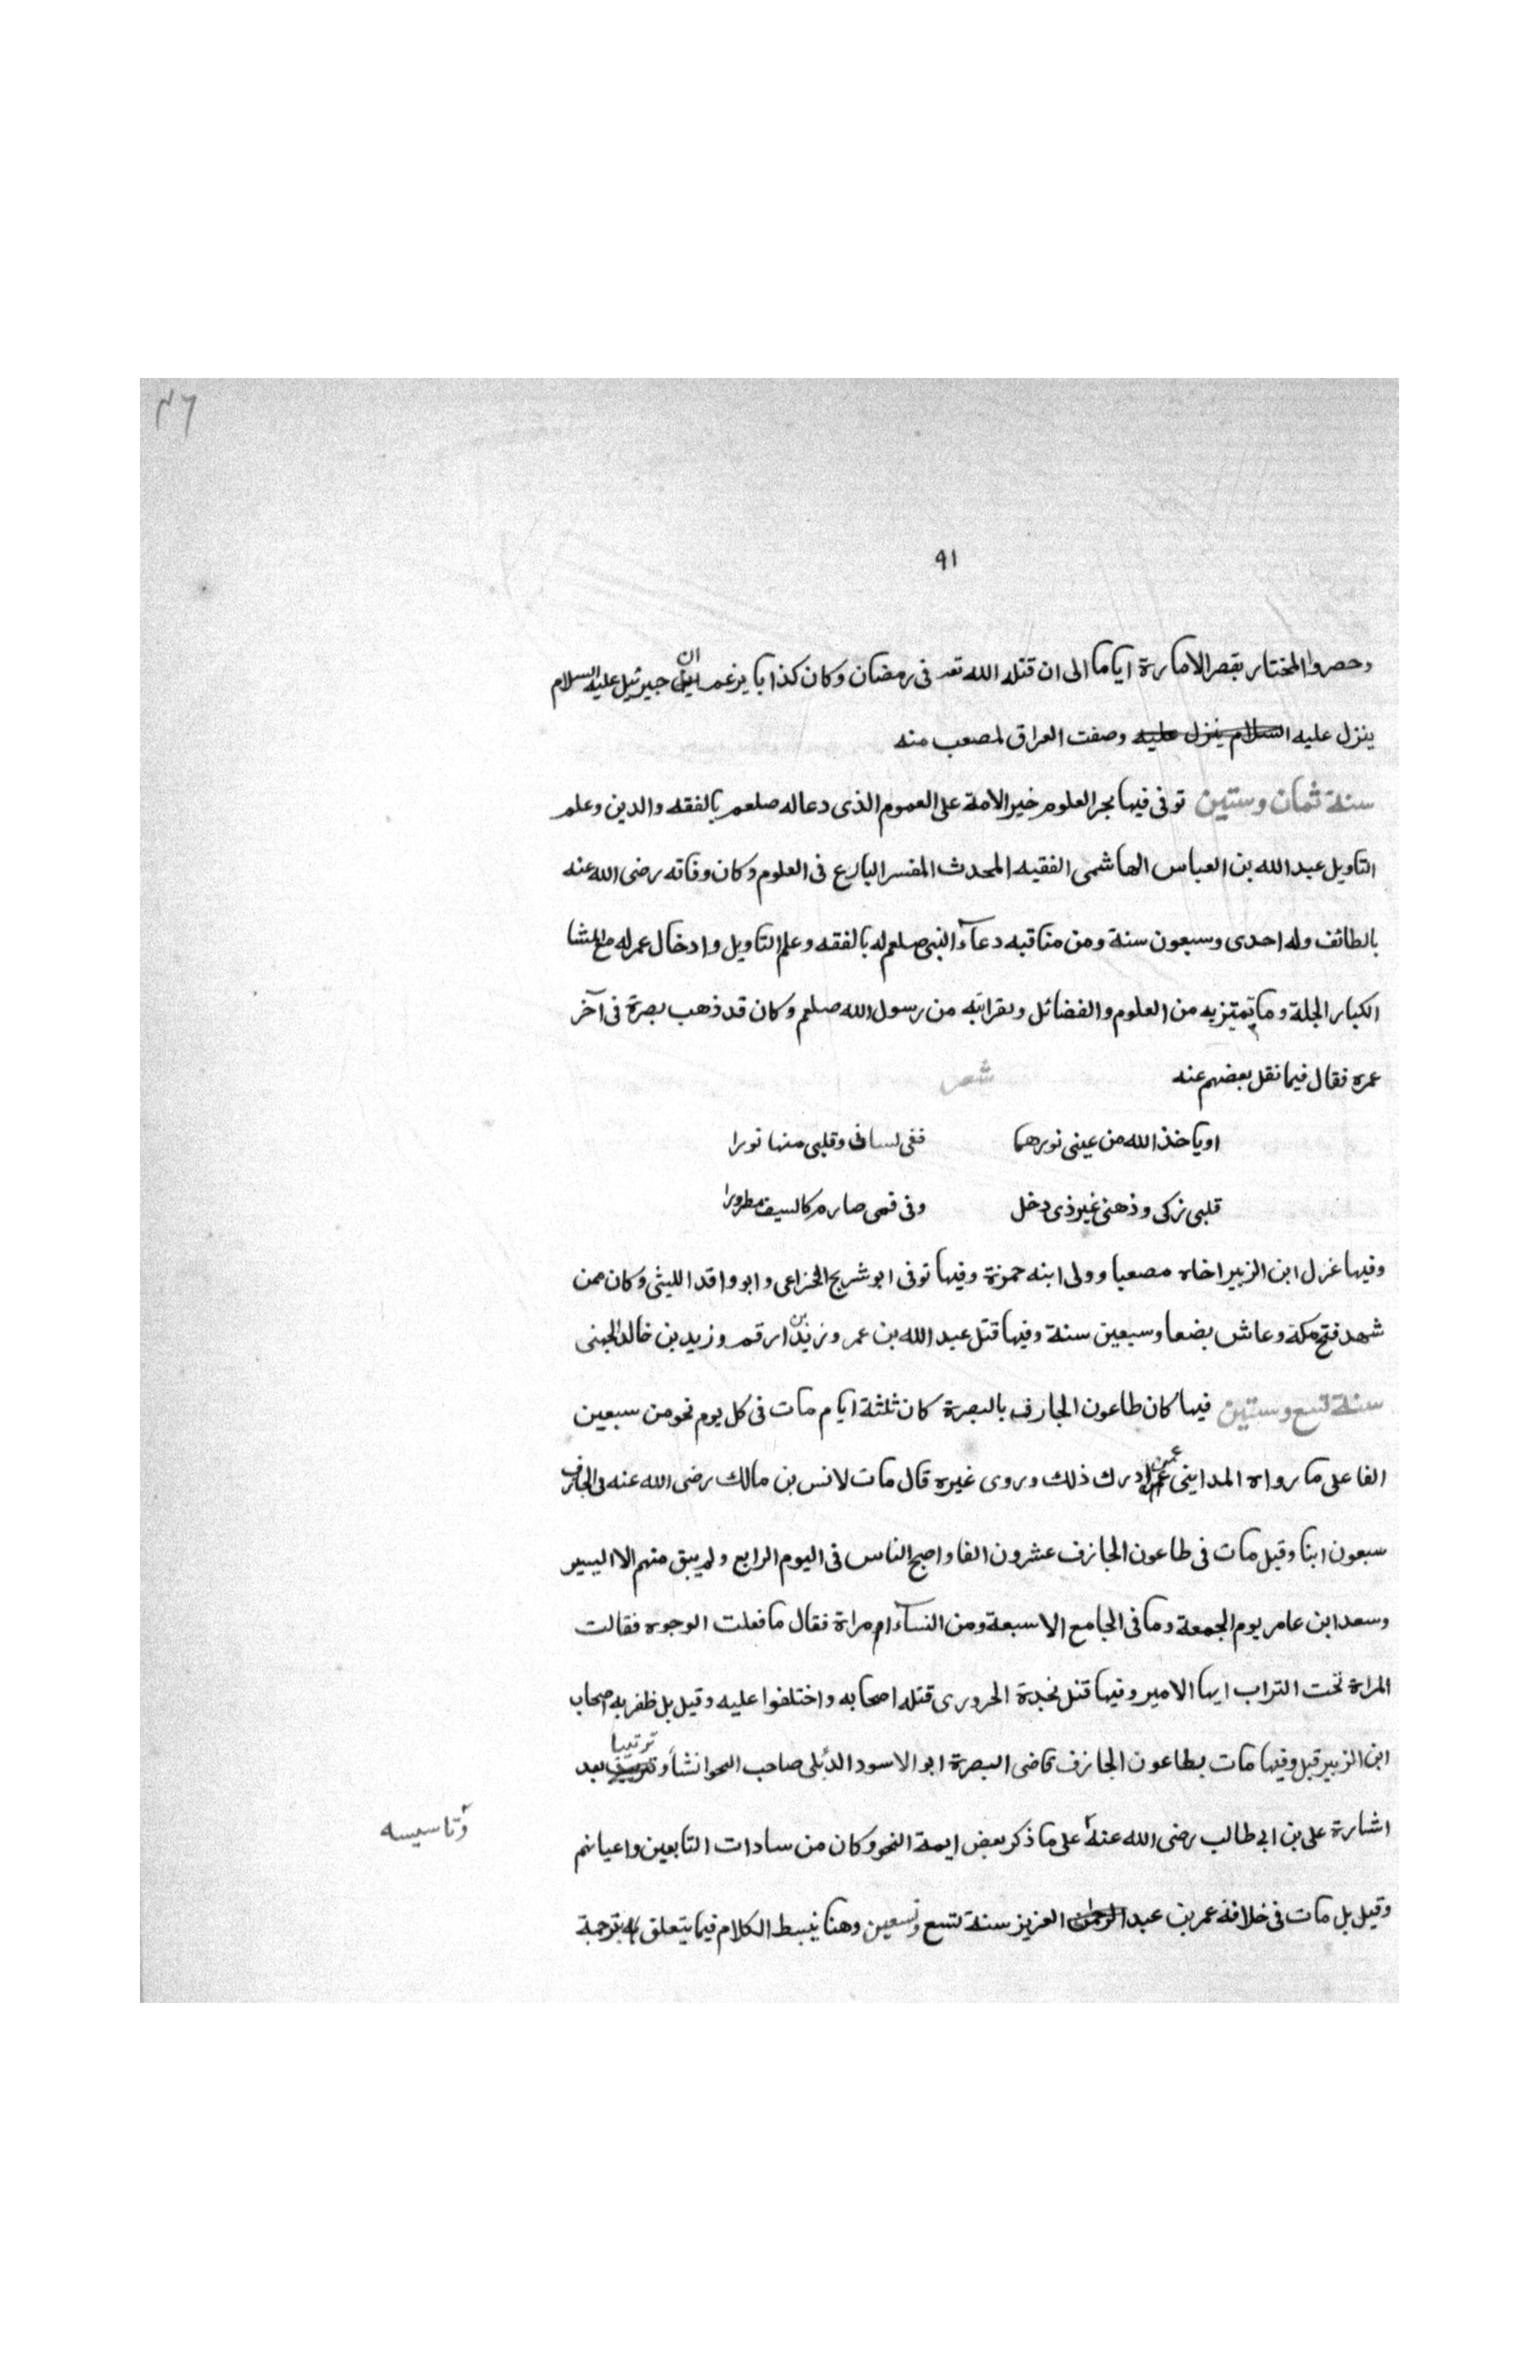 ٤٦
٩١
وحصروا المختار بقصر الامارة اياما الى ان قتله الله تعـ فى رمضان وكان كذابا يزعم ان جبرئيل عليه السلام
ينزل عليه السلام ينزل عليه وصفت العراق لمصعب منه
سنة ثمان وستين توفى فيها بحر العلوم خير الامة على العموم الذى دعا له صلعم بالفقه والدين وعلم
التاويل عبد الله بن العباس الهاشمى الفقيه المحدث المفسر البارع فى العلوم وكان وفاته رضى الله عنه
بالطائف وله احدى وسبعون سنة ومن مناقبه دعاء النبى صلعم له بالفقه وعلم التاويل وادخال عمر له مع المشا
الكبار الجلة وما تميز به من العلوم والفضائل وبقرابته من رسول الله صلعم وكان قد ذهب بصرة فى آخر
عمره فقال فيما نقل بعضهم عنه شعر
او ياخذ الله من عينى نورهما ففى لسانى وقلبى منها نورا
قلبى زكى وذهنى غير ذى دخل وفى فمى صارم كالسيف مطرورا
وفيها عزل ابن الزبير اخاه مصعبا وولى ابنه حمزة وفيها توفى ابو شريح الخزاعى وابو واقد الليثى وكان ممن
شهد فتح مكة وعاش بضعا وسبعين سنة وفيها قتل عبد الله بن عمر وزيد بن ارقم وزيد بن خالد الجهنى
سنة تسع وستين فيها كان طاعون الجارف بالبصرة كان ثلثة ايام مات فى كل يوم نحو من سبعين
الفا على ما رواه المداينى عمن ادرك ذلك وروى غيره قال مات لانس بن مالك رضى الله عنه فى الجارف
سبعون ابنا وقيل مات فى طاعون الجازف عشرون الفا واصبح الناس فى اليوم الرابع ولم يبق منهم الا اليسير
وسعد ابن عامر يوم الجمعة وما فى الجامع الا سبعة ومن النساء امراة فقال ما فعلت الوجوه فقالت
المراة تحت التراب ايها الامير وفيها قتل نجدة الحرورى قتله اصحابه واختلفوا عليه وقيل بل ظفر به اصحاب
ابن الزبير قبل وفيها مات بطاعون الجازف قاضى البصرة ابو الاسود الدئلى صاحب النحو انشأ وترتيبا بعد
اشارة على بن ابى طالب رضى الله عنه على ما ذكر بعض ايمة النحو وكان من سادات التابعين واعيانهم
وتاسيسه
وقيل بل مات فى خلافة عمر بن عبد الرحمن العزيز سنة تسع وتسعين وهنا ينبسط الكلام فيما يتعلق به بترجمة